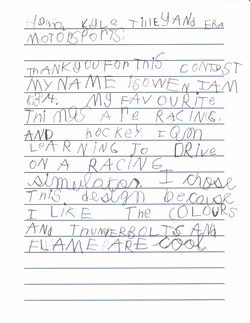 Kyle Tilley AND ERA
MOTORSPORTS
THANKYOU FOR THIS CONTEST
MY NAME IS OWEN I AM
MY FAVOURITE
THINGS ARE RACING
AND hockey. I am
LeARNING To DRIve
ON A RACING
simulator. I chose
This design because
I LIKE The COLOURS
AND THUNDERBOLTS AND
FLAME ARE cool